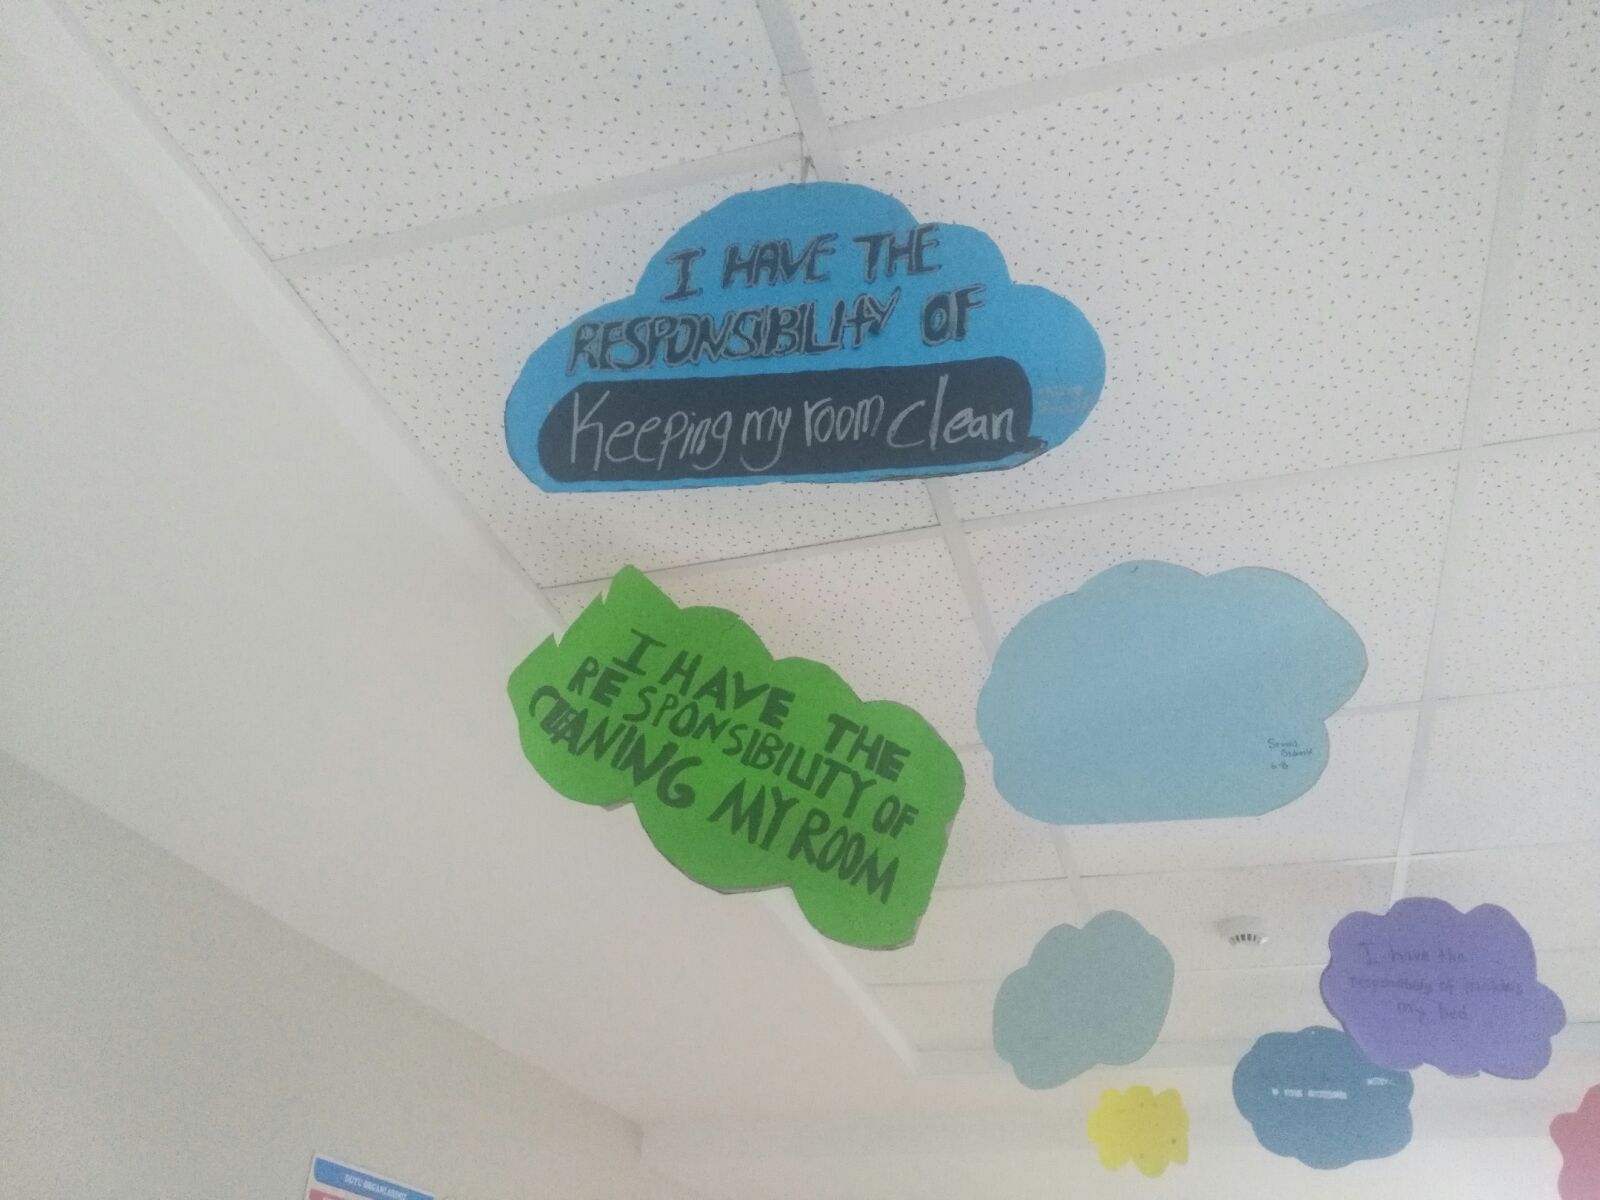 I HAVE THE
RESPONSIBILITY OF
Keeping my room clean
I HAVE THE
RESPONSIBILITY OF
CLEANING MY ROOM
I have the
responsibility of
my bed
DUYU ORGANLARIMIZ